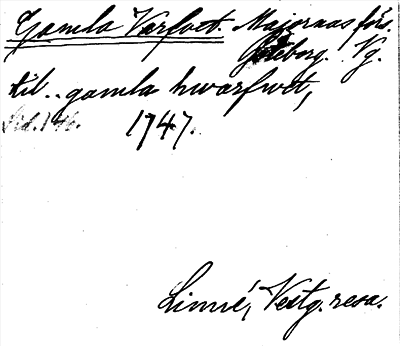 Gamla Varfvet. Majornas förs.
Göteborg. Vg.
til.. gamla hwarfwet,
Sid. 146. 1747.
Linné, Vestg. resa.